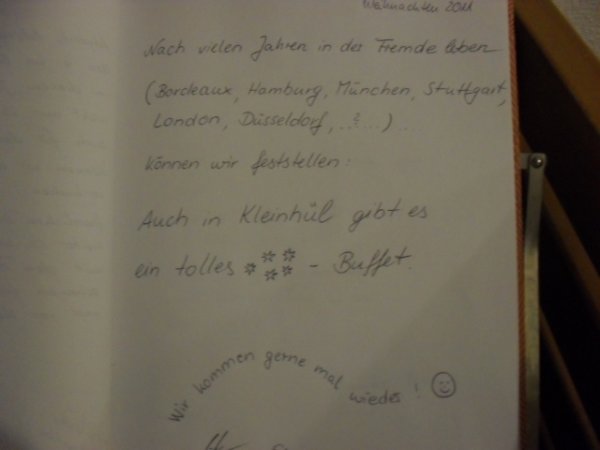 Weihnachten 2011
Nach vielen Jahren in der Fremde leben
(Bordeaux, Hamburg, München, Stuttgart,
London, Düsseldorf, ..?....)....
können wir feststellen:
Auch in Kleinhül gibt es
ein tolles ***** - Buffet.
Wir kommen gerne mal wieder! ☺